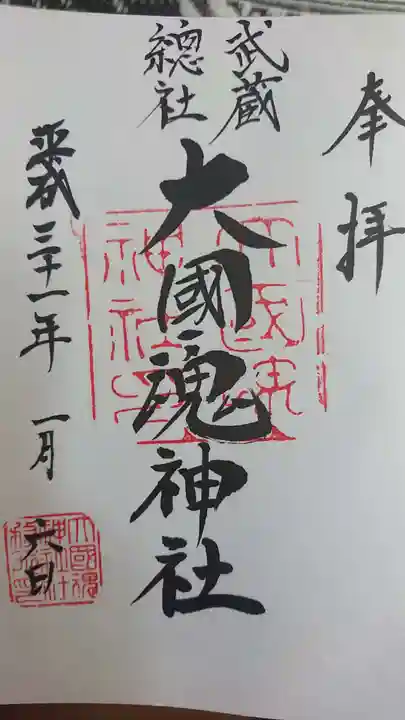 奉拝
武蔵
總社
大國魂神社
平成三十一年 一月
六日
大國魂
神社